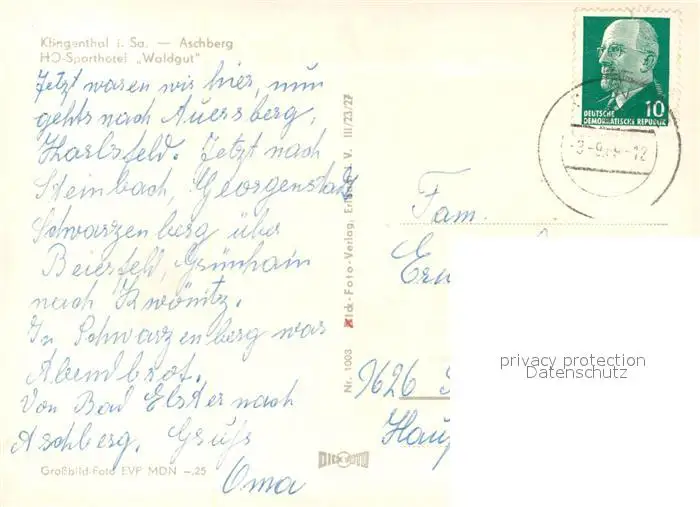 Klingenthal i. Sa. — Aschberg
HO-Sporthotel „Waldgut"
Jetzt waren wir hier, nun
gehts nach Auersberg,
Karlsfeld. Jetzt nach
Steinbach, Georgenstadt
Schwarzenberg über
Beierfeld, Grünhain
nach Zwönitz.
In Schwarzenberg war
Abendbrot.
Von Bad Elster nach
Aschberg. Gruß
Oma
Großbild-Foto EVP MDN -.25
Nr. 1003
Dick-Foto-Verlag, Erlbach i. V. III/23/27
DICK FOTO
10
DEUTSCHE
DEMOKRATISCHE REPUBLIK
Fam.
9626
privacy protection
Datenschutz